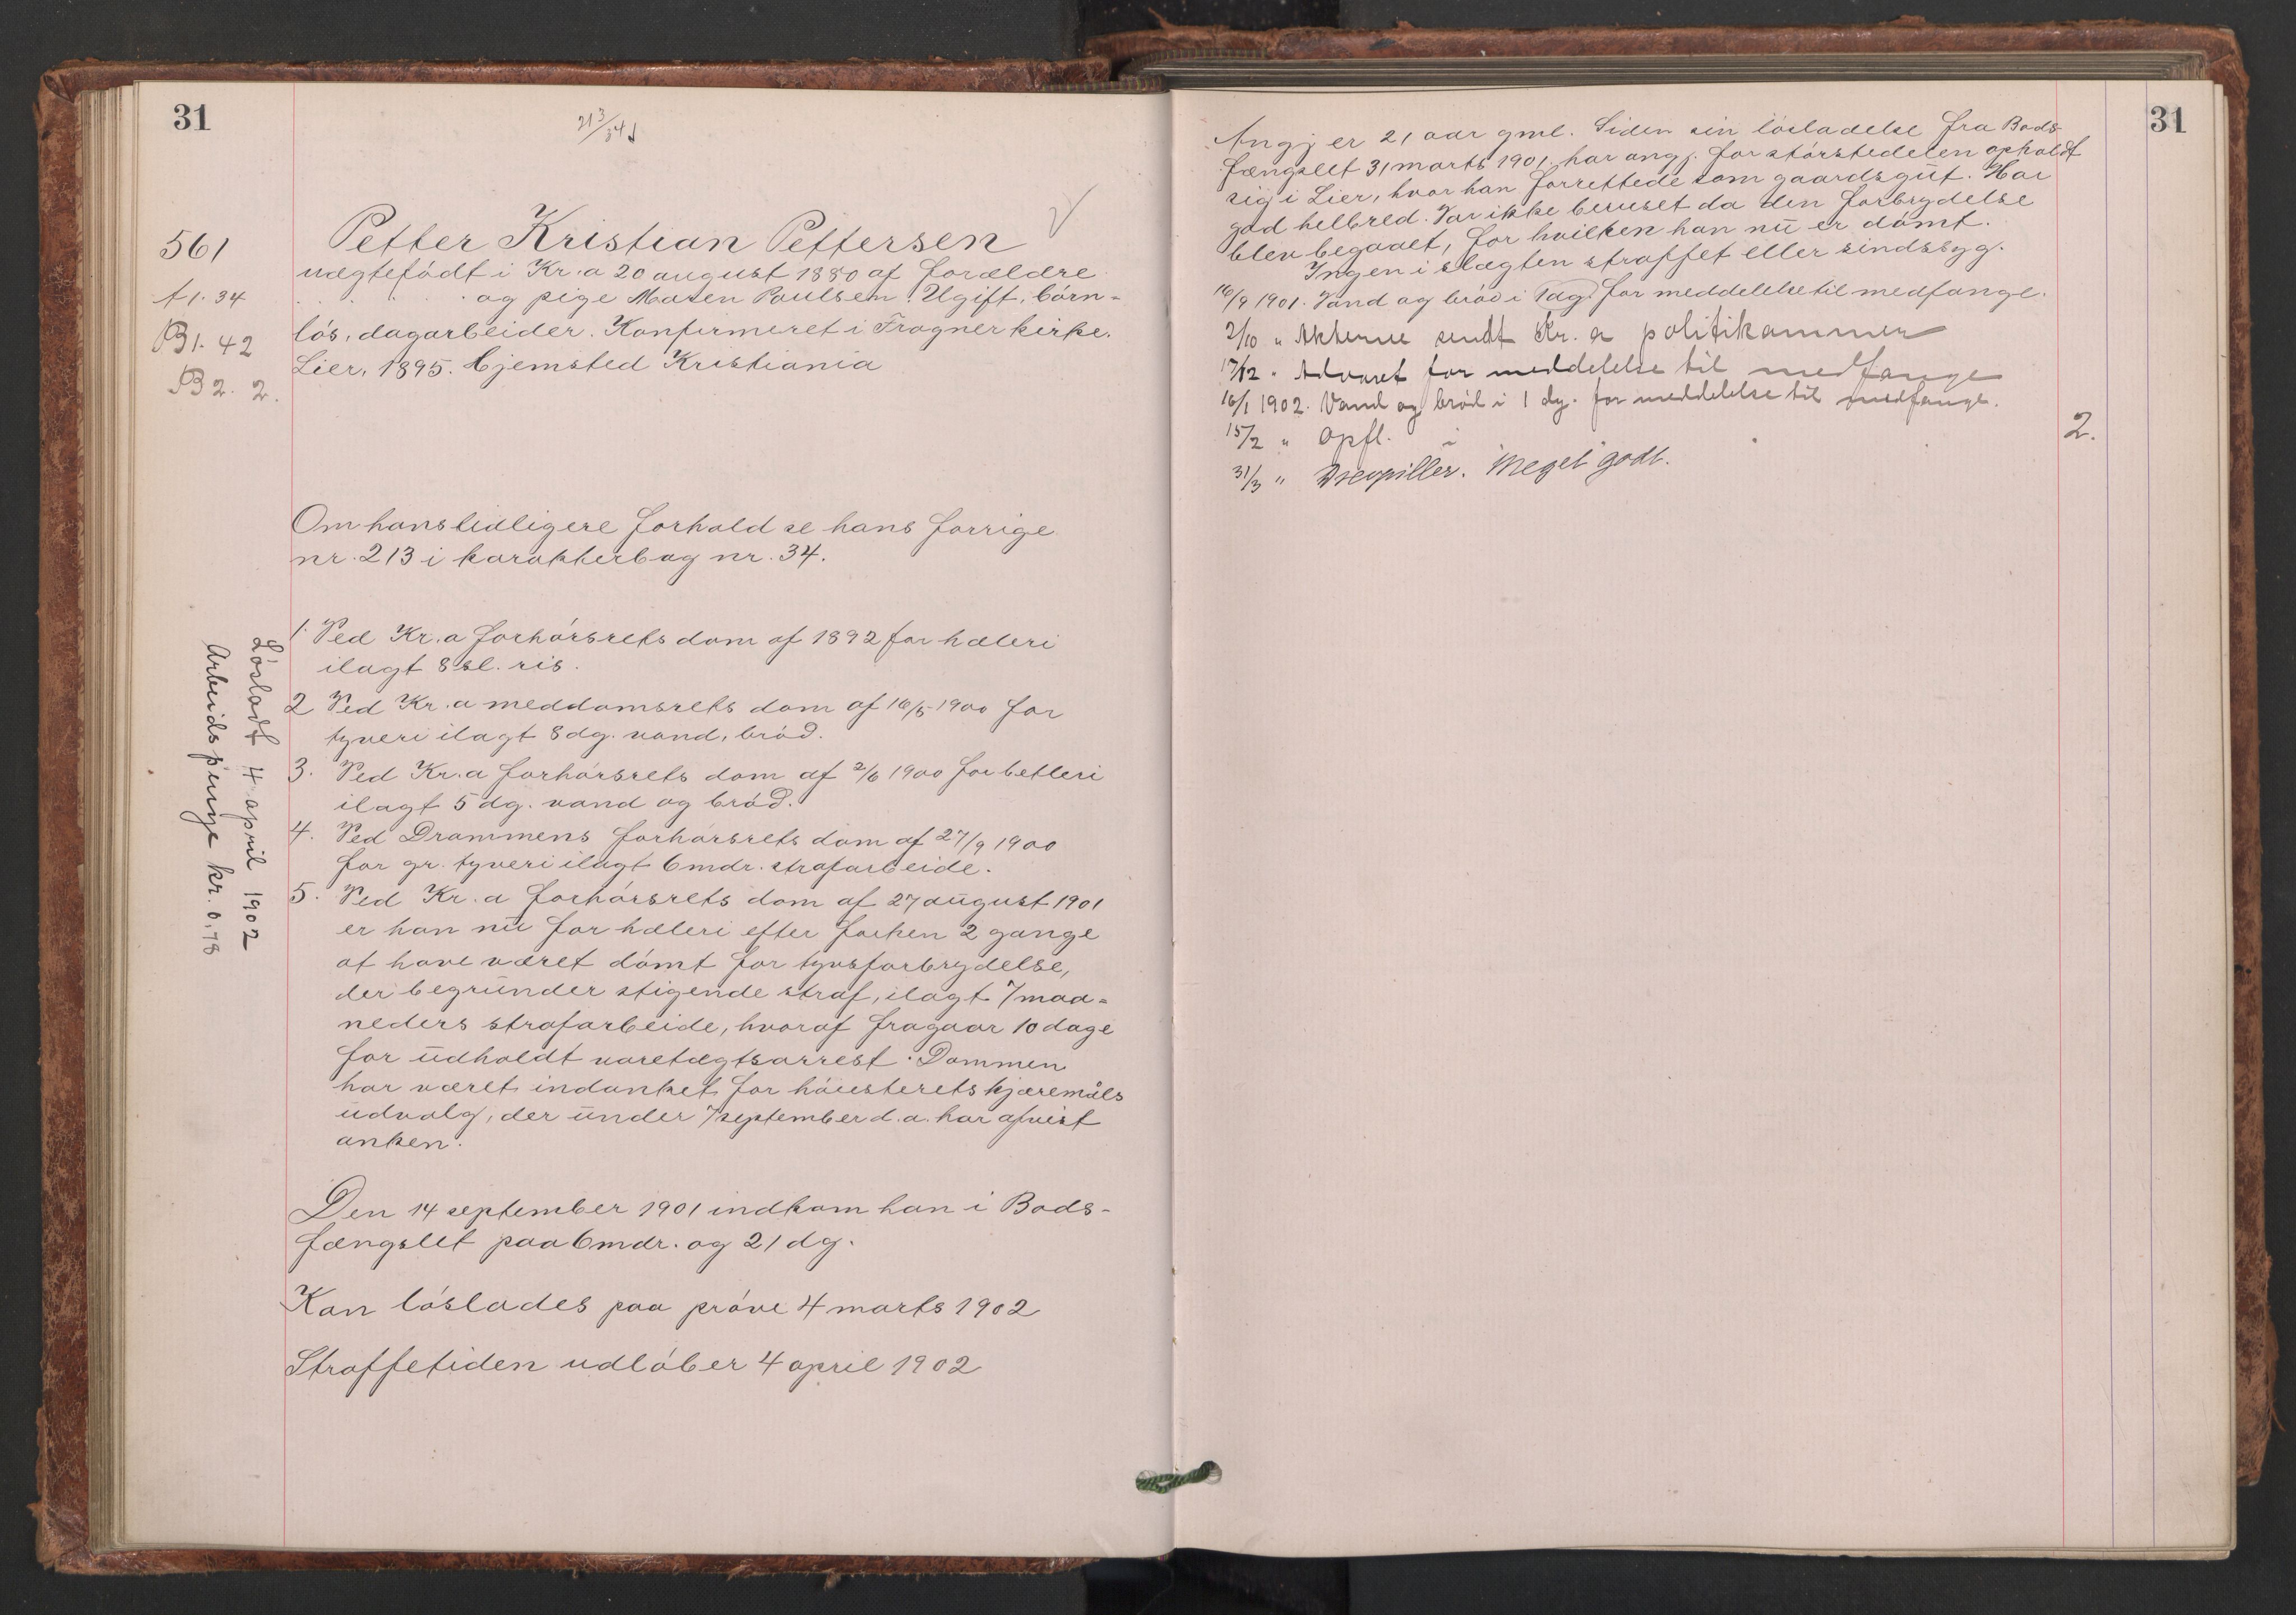 31
213/34
561
f1. 34
B1. 42
B2. 2.
Petter Kristian Pettersen
uægtefödt i Kr.a 20 august 1880 af forældre
. . . . . og pige Maren Paulsen. Ugift, börn-
lös, dagarbeider. Konfirmeret i Frogner kirke.
Lier, 1895. Hjemsted Kristiania
Om hans tidligere forhold se hans forrige
nr. 213 i karakterbog nr. 34.
1. Ved Kr.a forhörsrets dom af 1892 for hæleri
ilagt 8 sl. ris.
2 Ved Kr.a meddomsrets dom af 16/5 1900 for
tyveri ilagt 8 dg. vand, bröd.
3. Ved Kr.a forhörsrets dom af 2/6 1900 for betleri
ilagt 5 dg. vand og bröd.
4. Ved Drammens forhörsrets dom af 27/9 1900
for gr. tyveri ilagt 6 mdr. strafarbeide.
5. Ved Kr.a forhörsrets dom af 27 august 1901
er han nu for hæleri efter forhen 2 gange
at have været dömt for tyvsforbrydelse,
der begrunder stigende straf, ilagt 7 maa-
neders strafarbeide, hvoraf fragaar 10 dage
for udholdt varetægtsarrest. Dommen
har været indanket for höiesterets kjæremåls
udvalg, der under 7 september d.a. har afvist
anken.
Den 14 september 1901 indkom han i Bods-
fængslet paa 6 mdr. og 21 dg.
Kan löslades paa pröve 4 marts 1902
Straffetiden udlöber 4 april 1902
Lösladt 4 april 1902
Arbeidspenge kr. 0,78
31
Angj er 21 aar gml. Siden sin lösladelse fra Bods-
fængslet 31 marts 1901 har angj. for störstedelen opholdt
sig i Lier, hvor han forrettede som gaardsgut. Har
god helbred. Var ikke beruset da den forbrydelse
blev begaaet, for hvilken han nu er dömt.
Ingen i slægten straffet eller sindssyg.
16/9 1901. Vand og bröd i 1 dag for meddelelse til medfange.
2/10 " Akterne sendt Kr.a politikammer
17/12 " Advaret for meddelelse til medfange
16/1 1902. Vand og bröd i 1 dg. for meddelelse til medfange.
15/2 " Opfl. 2.
31/3 " Meget godt.